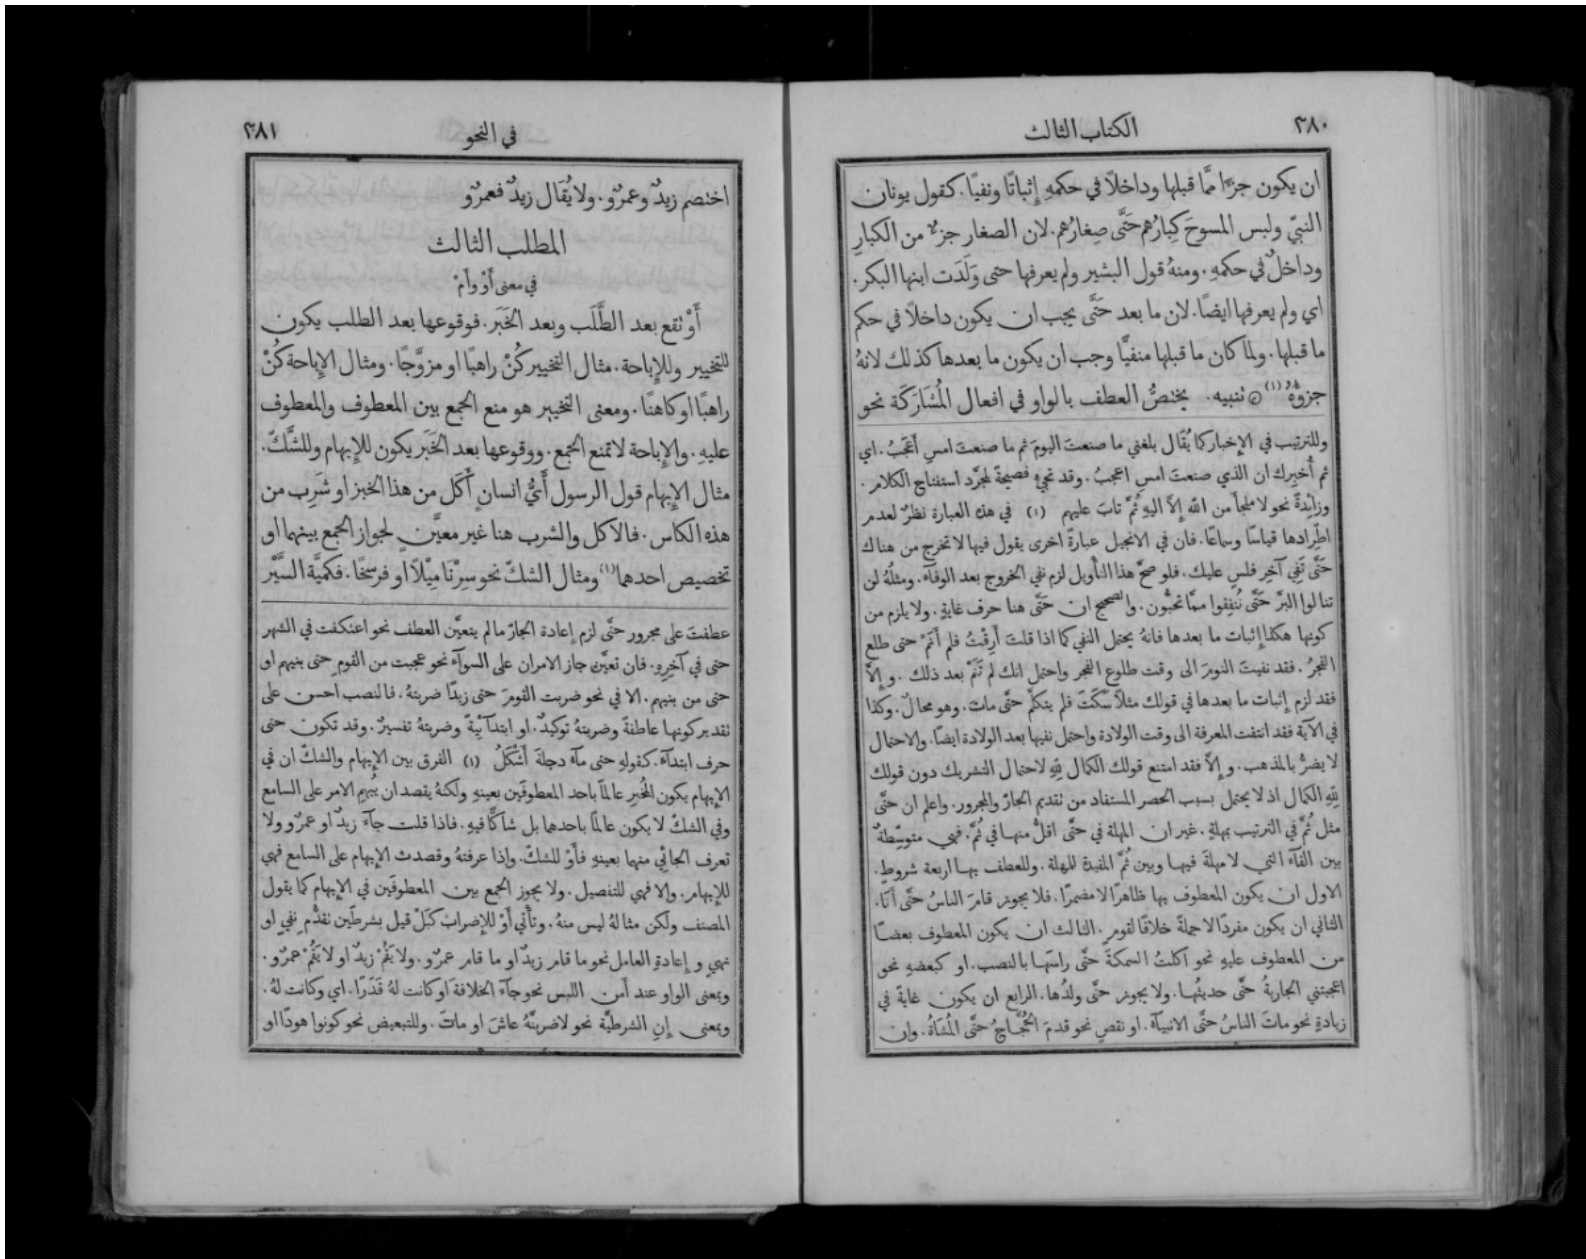 ٣٨٠
الكتاب الثالث
ان يكون جزءًا ممَّا قبلها وداخلاً في حكمهِ إثباتًا ونفيًا. كقول يونان
النبيّ ولبس المسوحَ كِبارُهم حَتَّى صِغارُهم. لان الصغار جزءٌ من الكبارِ
وداخلٌ في حكمهِ. ومنهُ قول البشير ولم يعرفها حتى وَلَدَت ابنها البكر.
اي ولم يعرفها ايضًا. لان ما بعد حَتَّى يجب ان يكون داخلاً في حكم
ما قبلها. ولما كان ما قبلها منفيًّا وجب ان يكون ما بعدها كذلك لانهُ
جزؤُهُ (١) ۞ تنبيه. يختصُّ العطف بالواو في افعال المُشَارَكَة نحو
وللترتيب في الإخبار كما يُقَال بلغني ما صنعتَ اليومَ ثم ما صنعتَ امسِ أَعَجَبُ. اي
ثم أُخبِرك ان الذي صنعتَ امسِ اعجبُ. وقد تجيء فصيحةً لمجرَّد استفتاح الكلام.
وزايِدةً نحو لا ملجأَ من الله إلاَّ اليهِ ثُمَّ تابَ عليهم (١) في هذه العبارة نظرٌ لعدم
اطِّرادها قياسًا وسماعًا. فان في الانجيل عبارةً اخرى يقول فيها لا تخرج من هناك
حَتَّى تَفِيَ آخِرَ فلسٍ عليك. فلو صحَّ هذا التأويل لزم نفي الخروج بعد الوفآء. ومثلُهُ لن
تنالوا البرَّ حَتَّى تُنفِقوا ممَّا تحبُّون. والصحيح ان حَتَّى هنا حرف غايةٍ. ولا يلزم من
كونها هكذا إثبات ما بعدها فانهُ يحتمل النفي كما اذا قلتَ أَرِقْتُ فلم أَنَمْ حتى طلع
الفجرُ. فقد نفيتَ النومَ الى وقت طلوع الفجر واحتمل انك لم تَنَمْ بعد ذلك. وإلاَّ
فقد لزم إثبات ما بعدها في قولك مثلاً سَكَتَ فلم يتكلَّم حتَّى مات. وهو محالٌ. وكذا
في الآية فقد انتفت المعرفة الى وقت الولادة واحتمل نفيها بعد الولادة ايضًا. والاحتمال
لا يضرُّ بالمذهب. وإلاَّ فقد امتنع قولك الكمال لِلّٰهِ لاحتمال التشريك دون قولك
لِلّٰهِ الكمال اذ لا يحتمل بسبب الحصر المستفاد من تقديم الجارّ والمجرور. واعلم ان حتَّى
مثل ثُمَّ في الترتيب بمهلةٍ. غير ان المهلة في حتَّى اقلُّ منها في ثُمَّ. فهي متوسِّطةٌ
بين الفآء التي لا مهلة فيها وبين ثُمَّ المفيدة للمهلة. وللعطف بها اربعة شروطٍ.
الاول ان يكون المعطوف بها ظاهرًا لا مضمرًا. فلا يجوز قامَ الناسُ حتَّى أَنَا.
الثاني ان يكون مفردًا لا جملةً خلافًا لقومٍ. الثالث ان يكون المعطوف بعضًا
من المعطوف عليهِ نحو اكلتُ السمكةَ حتَّى راسَها بالنصب. او كبعضهِ نحو
اعجبتني الجاريةُ حتَّى حديثُها. ولا يجوز حتَّى ولدُها. الرابع ان يكون غايةً في
زيادةٍ نحو ماتَ الناسُ حتَّى الانبيآءُ. او نقصٍ نحو قدمَ الحُجَّاجُ حتَّى المُشَاةُ. وان
٣٨١
في النحو
اختصم زيدٌ وعمرٌو. ولا يُقَال زيدٌ فعمرٌو
المطلب الثالث
في معنى أَوْ وأَمْ
أَوْ تقع بعد الطَّلَب وبعد الخَبَر. فوقوعها بعد الطلب يكون
للتخيير وللإباحة. مثال التخيير كُنْ راهبًا او مزوَّجًا. ومثال الإباحة كُنْ
راهبًا او كاهنًا. ومعنى التخيير هو منع الجمع بين المعطوف والمعطوف
عليهِ. والإباحة لا تمنع الجمع. ووقوعها بعد الخَبَر يكون للإبهام وللشَّكّ.
مثال الإبهام قول الرسول أَيُّ انسانٍ أَكَل من هذا الخبز او شَرِب من
هذه الكاس. فالاكل والشرب هنا غير معيَّنٍ لجواز الجمع بينهما او
تخصيص احدهما (١) ومثال الشكّ نحو سِرْنَا مِيْلاً او فرسخًا. فكميَّة السَّيْر
عطفتَ على مجرور حتَّى لزم إعادة الجارّ ما لم يتعيَّن العطف نحو اعتكفت في الشهر
حتى في آخِرِهِ. فان تعيَّن جاز الامران على السوآء نحو عجبت من القوم حتى بنيهم او
حتى من بنيهم. الا في نحو ضربت القومَ حتى زيدًا ضربتهُ. فالنصب احسن على
تقدير كونها عاطفةً وضربتهُ توكيدٌ. او ابتدآئيَّةً وضربتهُ تفسيرٌ. وقد تكون حتى
حرف ابتدآءٍ. كقولهِ حتى مآءُ دجلةَ أَشْكَلُ (١) الفرق بين الإبهام والشكّ ان في
الإبهام يكون المُخبِر عالمًا باحد المعطوفَين بعينهِ ولكنهُ يقصد ان يُبهِم الامر على السامع
وفي الشكّ لا يكون عالمًا باحدهما بل شاكًّا فيهِ. فاذا قلت جآءَ زيدٌ او عمرٌو ولا
تعرف الجائي منهما بعينهِ فأَوْ للشكّ. واذا عرفتهُ وقصدت الإبهام على السامع فهي
للإبهام. والا فهي للتفصيل. ولا يجوز الجمع بين المعطوفَين في الإبهام كما يقول
المصنف ولكن مثالهُ ليس منهُ. وتأتي أَوْ للإضراب كبَلْ قيل بشرطَين تقدُّم نفيٍ او
نهيٍ وإعادةِ العامل نحو ما قام زيدٌ او ما قام عمرٌو. ولا يَقُمْ زيدٌ او لا يَقُمْ عمرٌو.
وبمعنى الواو عند أَمن اللبس نحو جآءَ الخلافةَ او كانت لهُ قَدَرًا. اي وكانت لهُ.
وبمعنى إِنِ الشرطيَّة نحو لاضربنَّهُ عاشَ او ماتَ. وللتبعيض نحو كونوا هودًا او